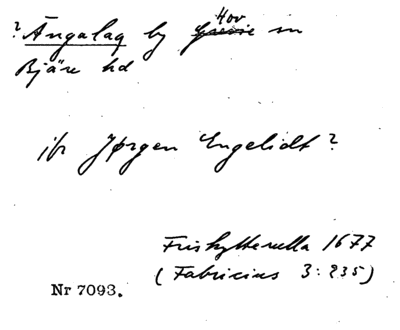 ? Ängalag by Hov sn
Bjäre hd
ifr Jørgen Engelidt?
Friskytterulla 1677
(Fabricius 3:235)
Nr 7093.